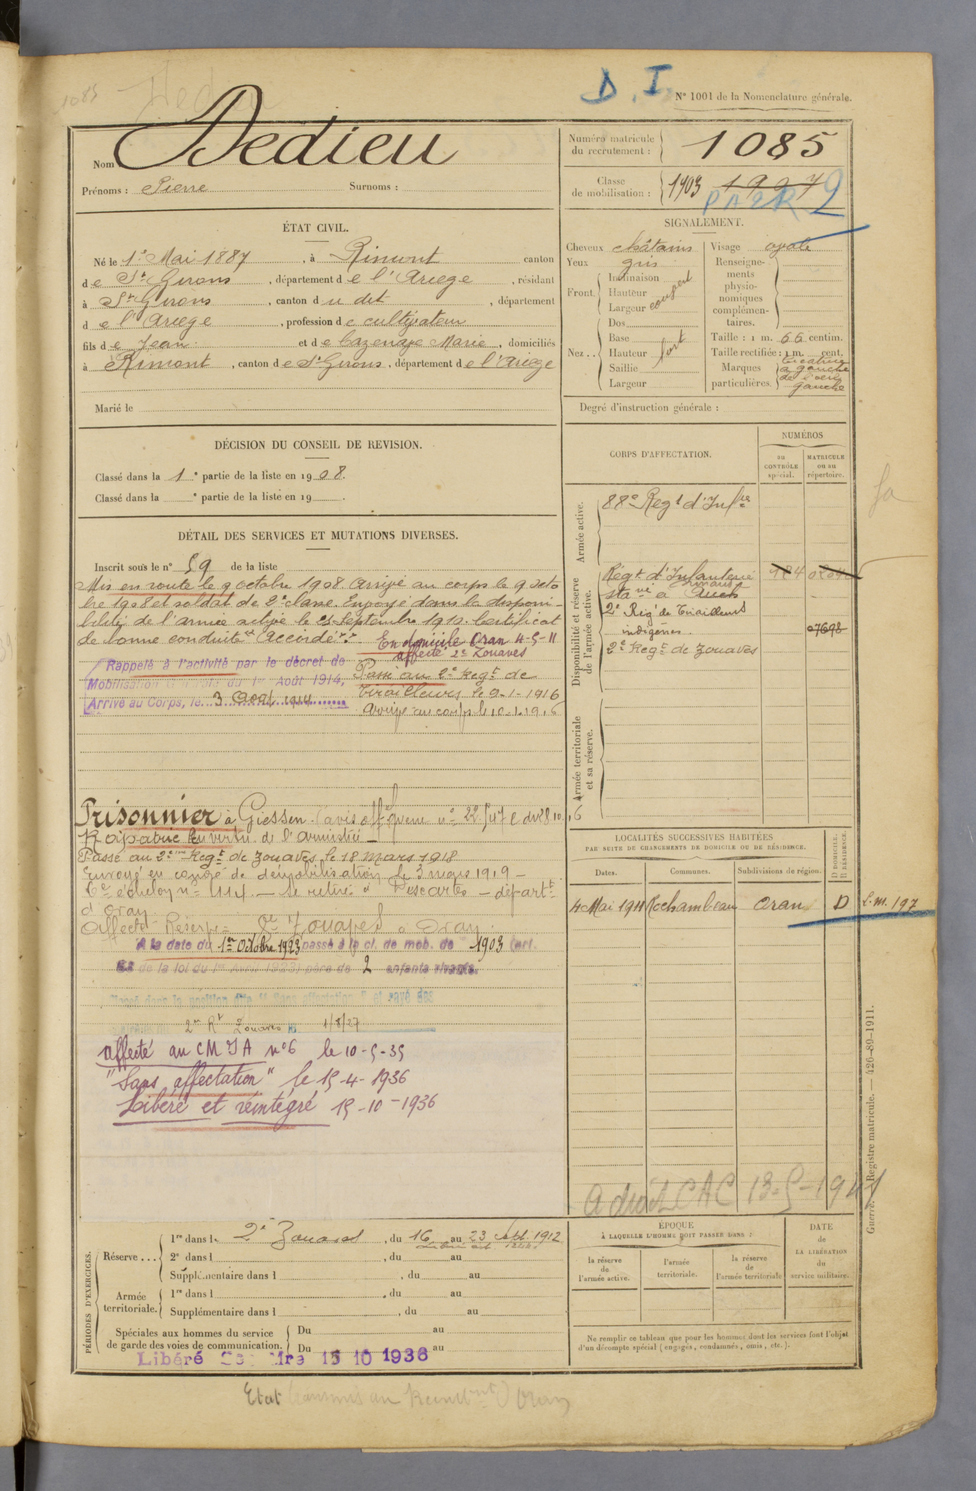 1085
D. I.
N° 1001 de la Nomenclature générale.
Nom Dedieu
Prénoms : Pierre Surnoms :
Numéro matricule du recrutement : 1085
Classe de mobilisation : 1903 1907
ÉTAT CIVIL.
Né le 1er Mai 1887, à Rimont canton
de St Girons, département de l'Ariège, résidant
à St Girons, canton du dit, département
d e l'Ariège, profession de cultivateur
fils de Jean et de Cazenave Marie, domiciliés
à Rimont, canton de St Girons, département de l'Ariège
Marié le
SIGNALEMENT.
Cheveux châtains
Yeux gris
Front. Inclinaison
Hauteur
Largeur
Nez. Dos
Base
Hauteur fort
Saillie
Largeur
Visage ovale
Renseignements physionomiques complémentaires.
Taille : 1 m. 66 centim.
Taille rectifiée : 1 m. cent.
Marques particulières. à gauche
gauche
Degré d'instruction générale :
DÉCISION DU CONSEIL DE REVISION.
Classé dans la 1e partie de la liste en 1908.
Classé dans la e partie de la liste en 19
DÉTAIL DES SERVICES ET MUTATIONS DIVERSES.
Inscrit sous le n° 59 de la liste
Mis en route le 9 octobre 1908. Arrivé au corps le 9 octo
bre 1908 et soldat de 2e classe. Envoyé dans la disponi-
bilité de l'armée active le septembre 1910. Certificat
de bonne conduite Accordé.
En domicile Oran 4-5-11
affecté 2e Zouaves
Rappelé à l'activité par le décret de
Mobilisation du 1er Août 1914.
Arrivé au Corps, le 3 Août 1914
Passé au 2e Regt de
Tirailleurs le 9-1-1916
Arrivé au corps le 10-1-1916
Prisonnier à Giessen
Rapatrié en vertu de l'armistice
Passé au 2me Regt de Zouaves le 18 mars 1918
Envoyé en congé de démobilisation le 3 mars 1919
échelon n° 1114 — Se retire à Descartes — départt
d'Oran
Affecté Réserve Zouaves à Oran
A la date du 1er Octobre 1923 passé à la cl. de mob. de 1903 (art.
de la loi du 1er Avril 1923) père de 2 enfants vivants.
2me Rt Zouaves 1/8/27
affecté au CMIA n°6 le 10-5-35
"Sans affectation" le 15-4-1936
Libéré et réintégré 15-10-1936
CORPS D'AFFECTATION.
NUMÉROS
au CONTRÔLE spécial.
MATRICULE ou au répertoire.
Armée active.
88e Regt d'Infie
Disponibilité et réserve de l'armée active.
Régt d'Infanterie
2e Régt de Tirailleurs
indigènes 07698
2e Regt de Zouaves
Armée territoriale et sa réserve.
LOCALITÉS SUCCESSIVES HABITÉES
PAR SUITE DE CHANGEMENTS DE DOMICILE OU DE RÉSIDENCE.
Dates. Communes. Subdivisions de région. D DOMICILE. R RÉSIDENCE.
4 Mai 1911 Rochambeau Oran D
Guerre. — Registre matricule. — 426-89-1911.
PÉRIODES D'EXERCICES.
Réserve... 1re dans l 2e Zouaves, du 16 au 23 sept 1912
2e dans l, du au
Supplémentaire dans l, du au
Armée territoriale. 1re dans l, du au
Supplémentaire dans l, du au
Spéciales aux hommes du service de garde des voies de communication. Du au
Du au
Libéré 15 10 1936
ÉPOQUE
À LAQUELLE L'HOMME DOIT PASSER DANS :
la réserve de l'armée active.
l'armée territoriale.
la réserve de l'armée territoriale
DATE DE LA LIBÉRATION du service militaire.
Ne remplir ce tableau que pour les hommes dont les services font l'objet
d'un décompte spécial (engagés, condamnés, omis, etc.).